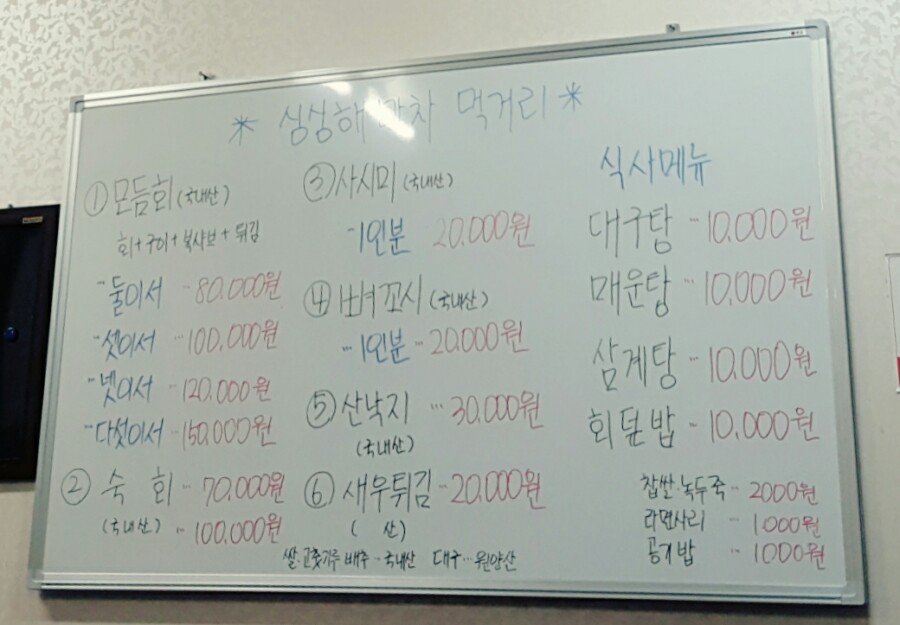 * 싱싱해 마차 먹거리 *
① 모듬회 (국내산)
회 + 구이 + 북샤브 + 튀김
··둘이서 ··80.000원
··셋이서 ···100.000원
··넷이서 ··120.000원
··다섯이서 ··150.000원
② 숙 회 ·· 70.000원
(국내산) ·· 100.000원
③ 사시미 (국내산)
··1인분 20.000원
④ 뼈꼬시 (국내산)
···1인분 ··20.000원
⑤ 산낙지 ··· 30.000원
(국내산)
⑥ 새우튀김 ··20.000원
( 산)
쌀·고춧가루 배추 ·· 국내산 대구 ··· 원양산
식사메뉴
대구탕 ··· 10.000원
매운탕 ·· 10.000원
삼계탕 ·· 10.000원
회덮밥 ·· 10.000원
찹쌀·녹두죽 ·· 2000원
라면사리 ·· 1000원
공기밥 ·· 1000원